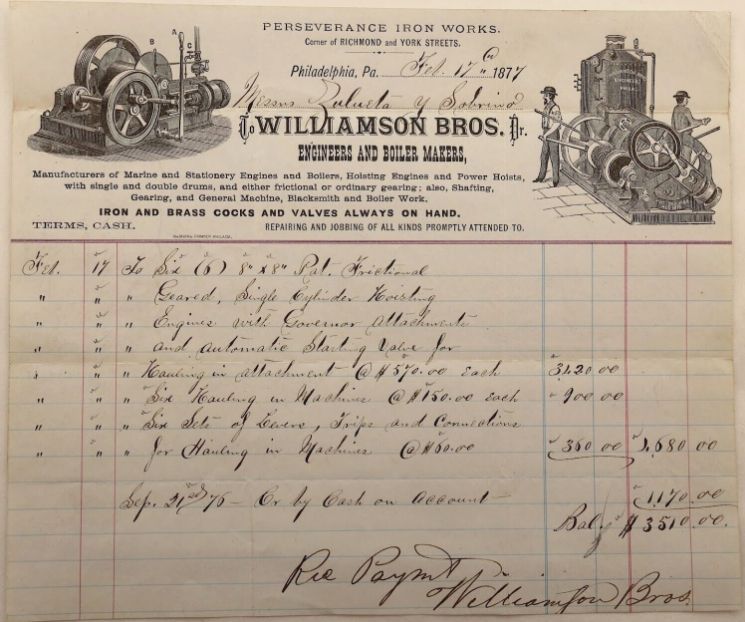 PERSEVERANCE IRON WORKS.
Corner of RICHMOND and YORK STREETS.
Philadelphia, Pa. Feb. 17th 1877
Messrs Zulueta y Sobrino
To WILLIAMSON BROS. Dr.
ENGINEERS AND BOILER MAKERS,
Manufacturers of Marine and Stationery Engines and Boilers, Hoisting Engines and Power Hoists,
with single and double drums, and either frictional or ordinary gearing; also, Shafting,
Gearing, and General Machine, Blacksmith and Boiler Work.
IRON AND BRASS COCKS AND VALVES ALWAYS ON HAND.
TERMS, CASH. REPAIRING AND JOBBING OF ALL KINDS PROMPTLY ATTENDED TO.
A
B
C
Feb. 17 To Six (6) 8" x 8" Pat. Frictional
" " " Geared, Single Cylinder Hoisting
" " " Engines with Governor attachments
" " " and automatic Starting Valve for
" " " Hauling in attachment @ $570.00 each 3420 00
" " " Six Hauling in Machines @ $150.00 each 900 00
" " " Six Sets of Levers, Trips and Connections
" " " for Hauling in Machines @ $60.00 360 00 4680 00
Sep. 21st 76 - Cr by Cash on Account 1170.00
Bal. $3510.00.
Rec Paymt
Williamson Bros.